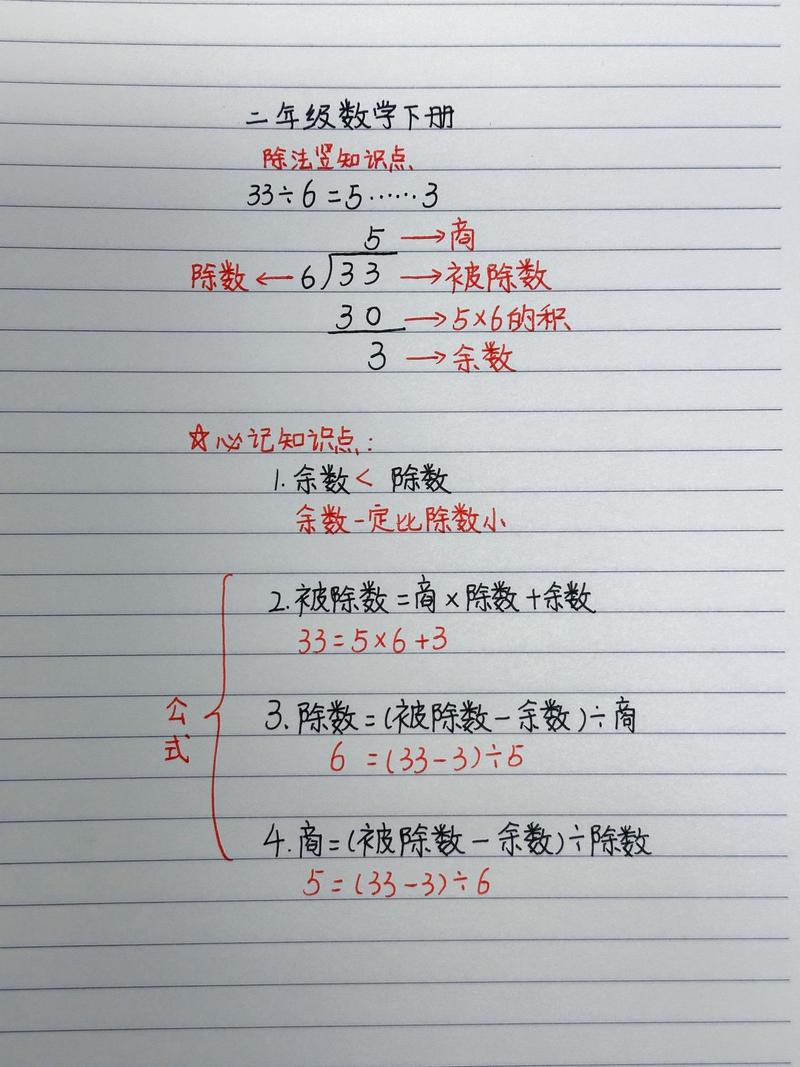 二年级数学下册
除法竖知识点
33÷6=5……3
5→商
除数←6)33→被除数
30→5×6的积
3→余数
☆必记知识点:
1.余数< 除数
余数一定比除数小
2.被除数=商×除数+余数
33=5×6+3
公式
3.除数=(被除数-余数)÷商
6=(33-3)÷5
4.商=(被除数-余数)÷除数
5=(33-3)÷6